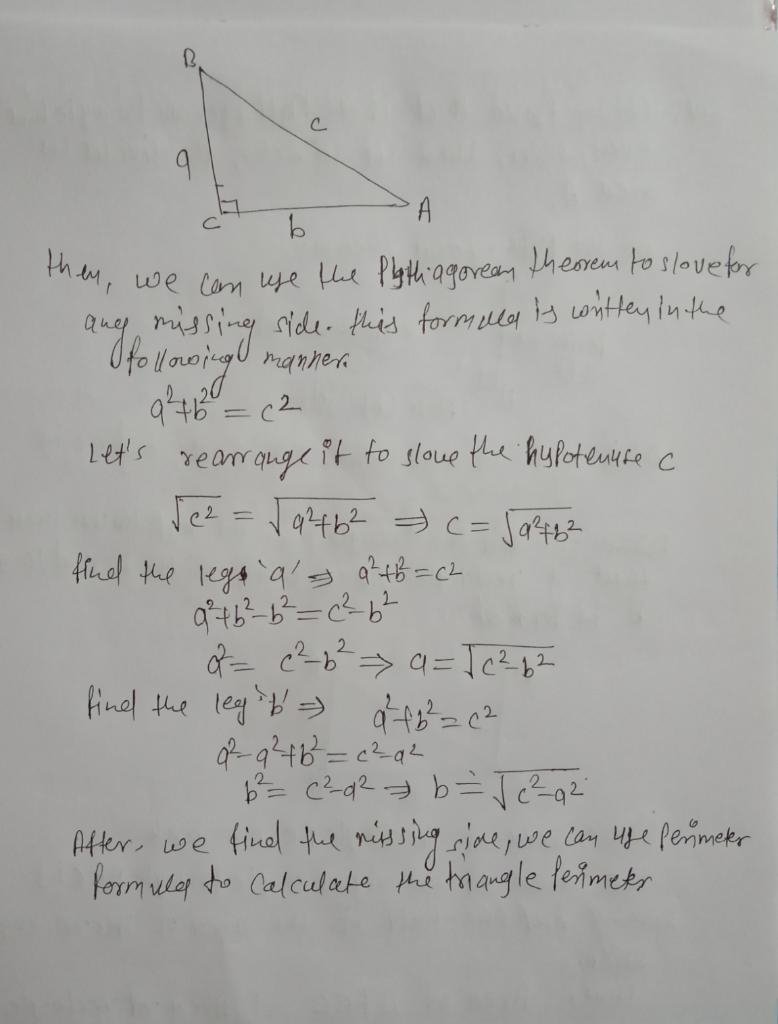 B
c
a
C
b
A
then, we can use the Pythagorean theorem to slove for
any missing side. this formula is written in the
following manner.
a²+b² = c²
Let's rearrange it to slove the hypotenuse c
√c² = √a²+b² ⇒ c = √a²+b²
find the legs 'a' ⇒ a²+b²=c²
a²+b²-b²=c²-b²
a²= c²-b² ⇒ a=√c²-b²
find the leg 'b' ⇒ a²+b²=c²
a²-a²+b²=c²-a²
b²= c²-a² ⇒ b = √c²-a²
After, we find the missing side, we can use perimeter
formula to calculate the triangle perimeter